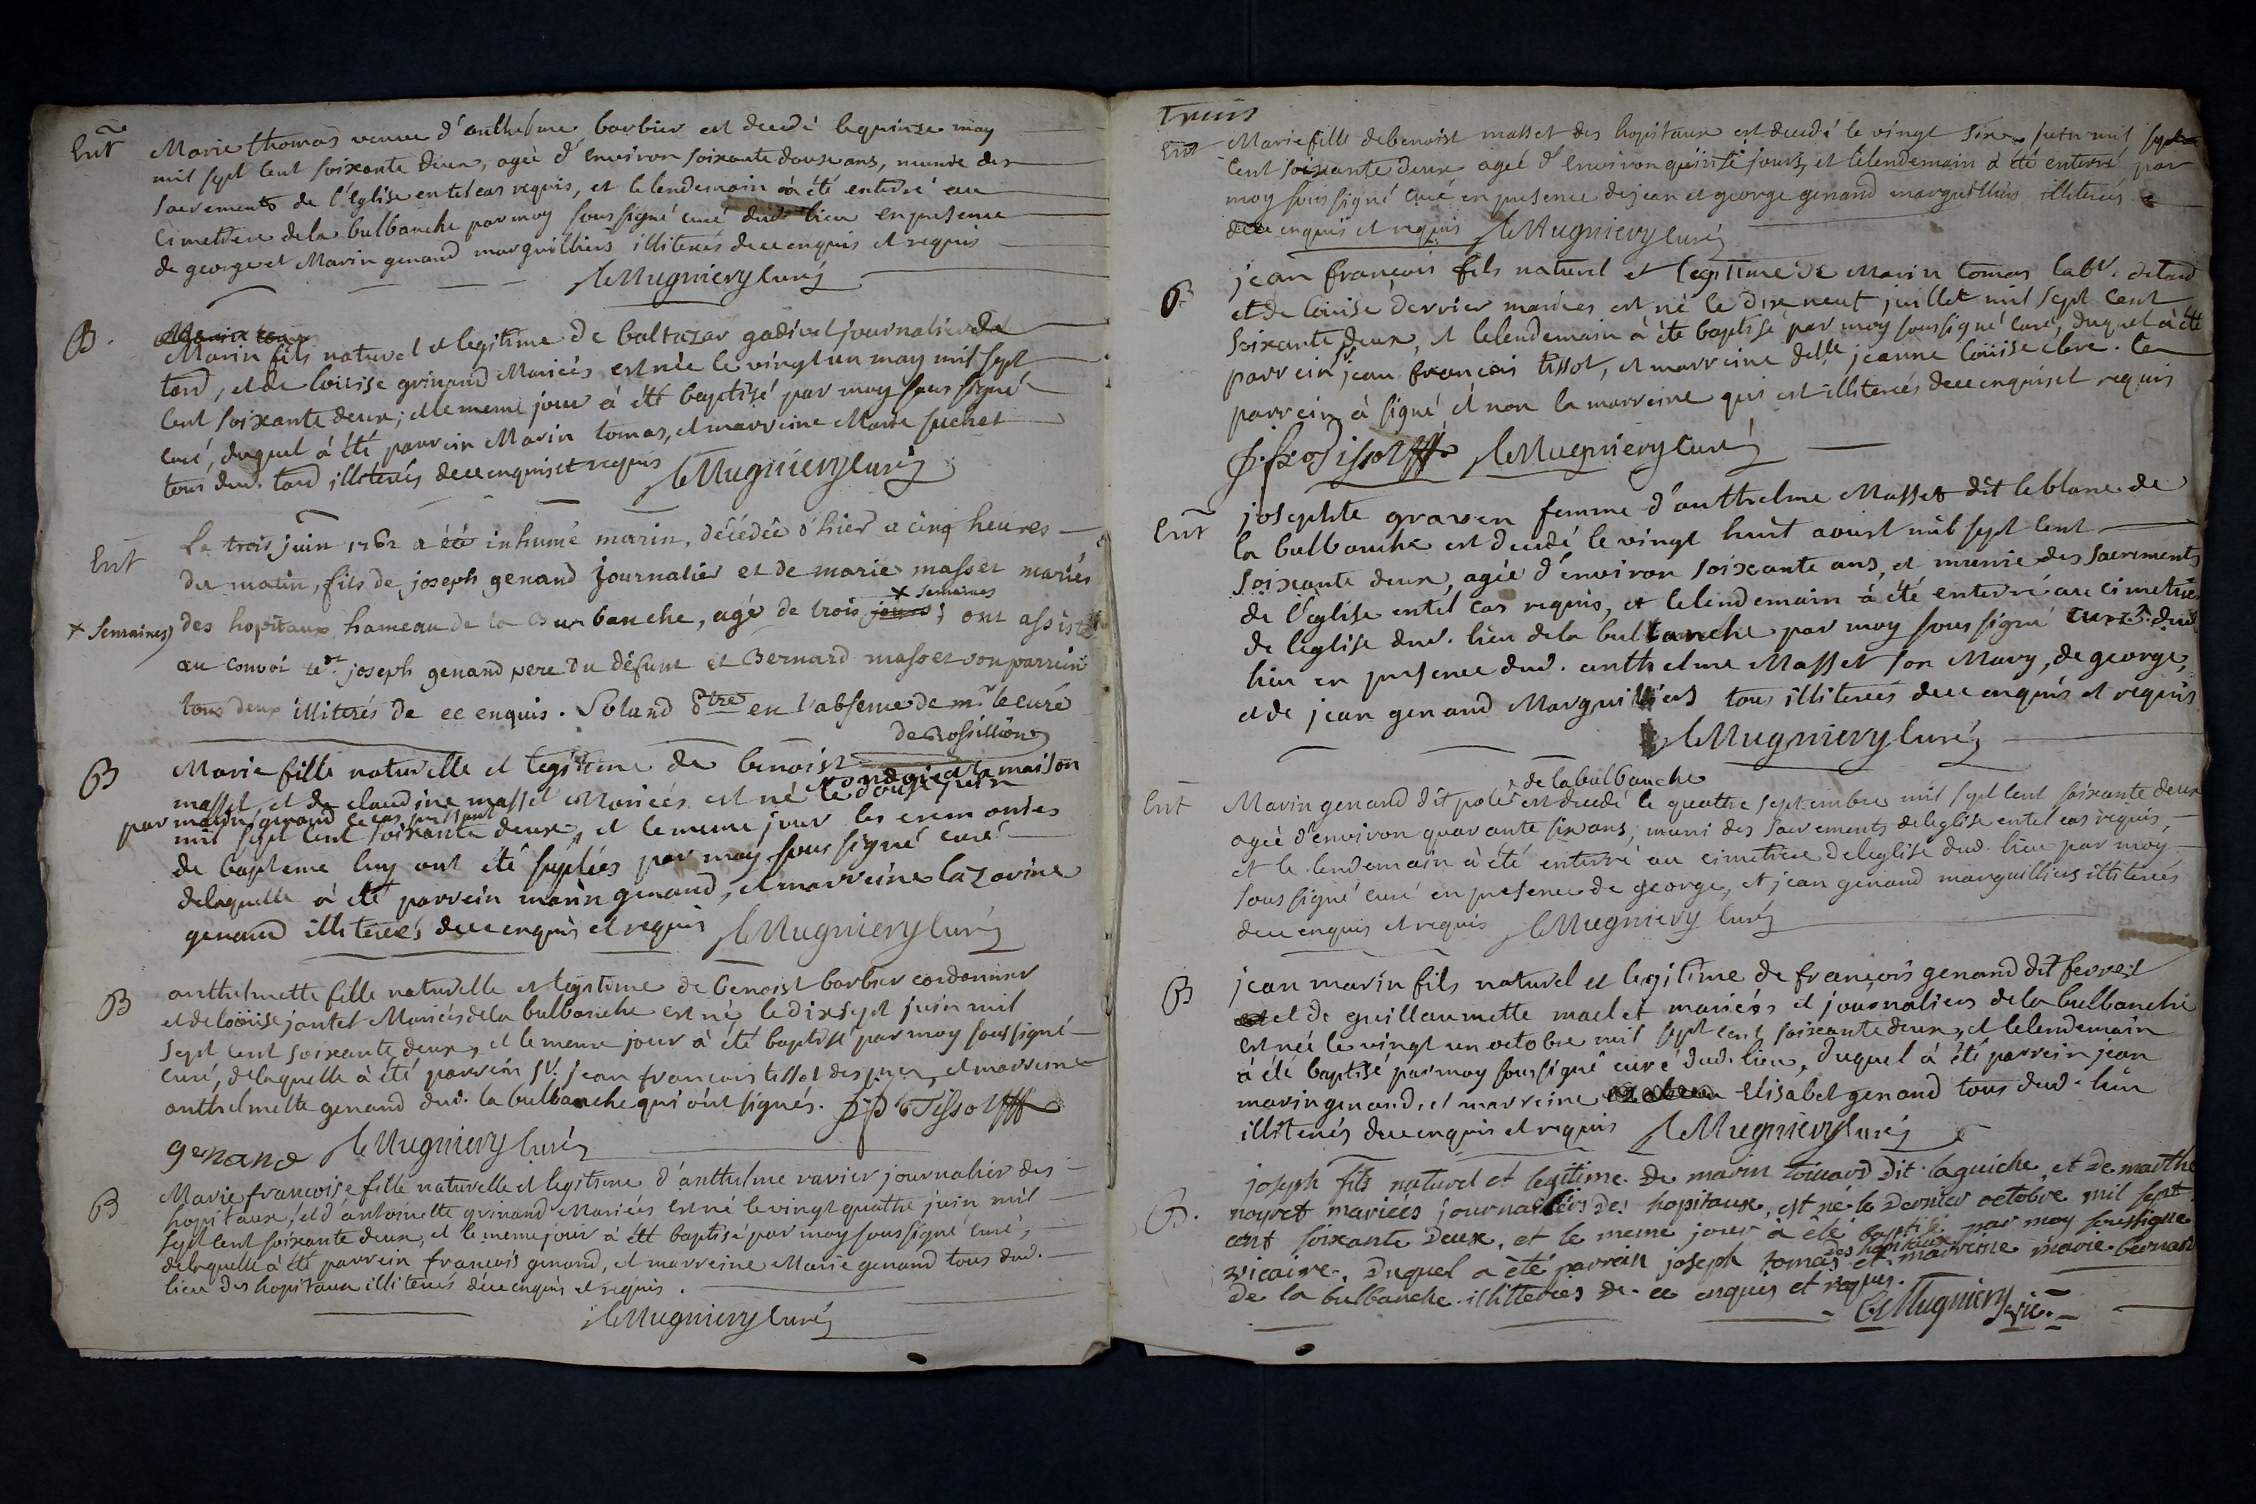 Ent
Marie thomas veuve d'anthelme barbier est decedé le quinze may
mil sept cent soixante deux, agée d'environ soixante douse ans, munie des
sacrements de l'église en tel cas requis, et le lendemain à été enterré au
cimetiere de la bulbanche par moy soussigné curé dud. lieu en presence
de george et Marin genand marguilliers illiterés de ce enquis et requis
leMugniery curé
B.
Marin fils naturel et legitime de baltazar gadivel journalier de
tard, et de louise grinand Mariés est née le vingt un may mil sept
cent soixante deux; et le meme jour à été baptisé par moy soussigné
curé, duquel à été parrein Marin tomas, et marreine Marie suchet
tous dud. tard illiterés de ce enquis et requis leMugniery curé
Ent
Le trois juin 1762 a été inhumé marin, décédée d'hier a cinq heures
du matin, fils de joseph genand journalier et de marie masset mariés
x semaines
x semaines) des hopitaux hameau de la Burbanche, agé de trois jours; ont assisté
au convoi led.t joseph genand pere du défunt et Bernard masset son parrein
tous deux illiterés de ce enquis. Soland ptre en l'absence de mr le curé
de Rossillion
B
Marie fille naturelle et legitime de benoist
masset, et de claudine masset Mariés est né le douse juin
ondoyée a la maison
par marin genand le cas pressant
mil sept cent soixante deux, et le meme jour les ceremonies
de bapteme luy ont été suplées par moy soussigné curé
delaquelle à été parrein marin genand, et marreine lazarine
genand illiterés de ce enquis et requis leMugniery curé
B
anthelmette fille naturelle et legitime de benoist barbier cordonnier
et de loüise jantet Mariés de la bulbanche est né le dix sept juin mil
sept cent soixante deux, et le meme jour à été baptisé par moy soussigné
curé, delaquelle à été parrein sr. jean francois tissot et marreine
anthelmette genand dud. la bulbanche qui ont signés. j. f. Tissot
genand leMugniery curé
B
Marie françoise fille naturelle et legitime d'anthelme ravier journalier des
hopitaux, et d'antoinette grinand Mariés est né le vingt quatre juin mil
sept cent soixante deux, et le meme jour à été baptisé par moy soussigné curé,
delaquelle à été parrein françois genand, et marreine Marie genand tous dud.
lieu des hopitaux illiterés de ce enquis et requis.
leMugniery curé
Trois
Ent
Marie fille de benoist masset des hopitaux est decedé le vingt six mil sept
cent soixante deux ageé d'environ quinse jours, et le lendemain à été enterré par
moy soussigné curé en presence de jean et george genand marguilliers illiterés
de ce enquis et requis leMugniery curé
B
jean françois fils naturel et legitime de Marin tomas labr. de tard
et de louise derrier mariees est né le dix neuf juillet mil sept cent
soixante deux, et le lendemain à été baptisé par moy soussigné curé, duquel à été
parrein sr. jean françois tissot, et marreine delle jeanne loüise clerc. le
parrein à signé et non la marreine qui est illiterés de ce enquis et requis
j. fr. Tissot leMugniery curé
Ent
josephte graven femme d'anthelme Masset dit leblanc de
la bulbanche est decedé le vingt huit aoust mil sept cent
soixante deux, agée d'environ soixante ans, et munie des sacrements
de l'église en tel cas requis, et le lendemain à été enterré au cimetiere
de l'eglise dud. lieu de la bulbanche par moy soussigné curé dud.
lieu en presence dud. anthelme Masset son Mary, de george,
et de jean genand Marguilliers tous illiterés de ce enquis et requis
leMugniery curé
de la bulbanche
Ent
Marin genand dit polet est decedé le quattre septembre mil sept cent soixante deux
agée d'environ quarante six ans, muni des sacrements de leglise en tel cas requis,
et le lendemain à été enterré au cimetiere de leglise dud. lieu par moy
soussigné curé en presence de george, et jean genand marguilliers illiterés
de ce enquis et requis leMugniery curé
B
jean marin fils naturel et legitime de françois genand dit ferret
et de guillaumette maclet mariées et journaliers de la bulbanche
est née le vingt un octobre mil sept cent soixante deux, et le lendemain
à été baptisé par moy soussigné curé dud. lieu, duquel à été parrein jean
marin genand, et marreine Elisabet genand tous dud. lieu
illiterés de ce enquis et requis leMugniery curé
B.
joseph fils naturel et legitime de marin touard dit laguiche, et de marthe
noyret mariéés journaliers des hopitaux, est né le dernier octobre mil sept
cent soixante deux, et le meme jour à été baptisé par moy soussigné
des hopitaux
vicaire. Duquel a été parrein joseph tomas et marreine marie bernard
de la bulbanche illitterés de ce enquis et requis.
leMugniery vic.